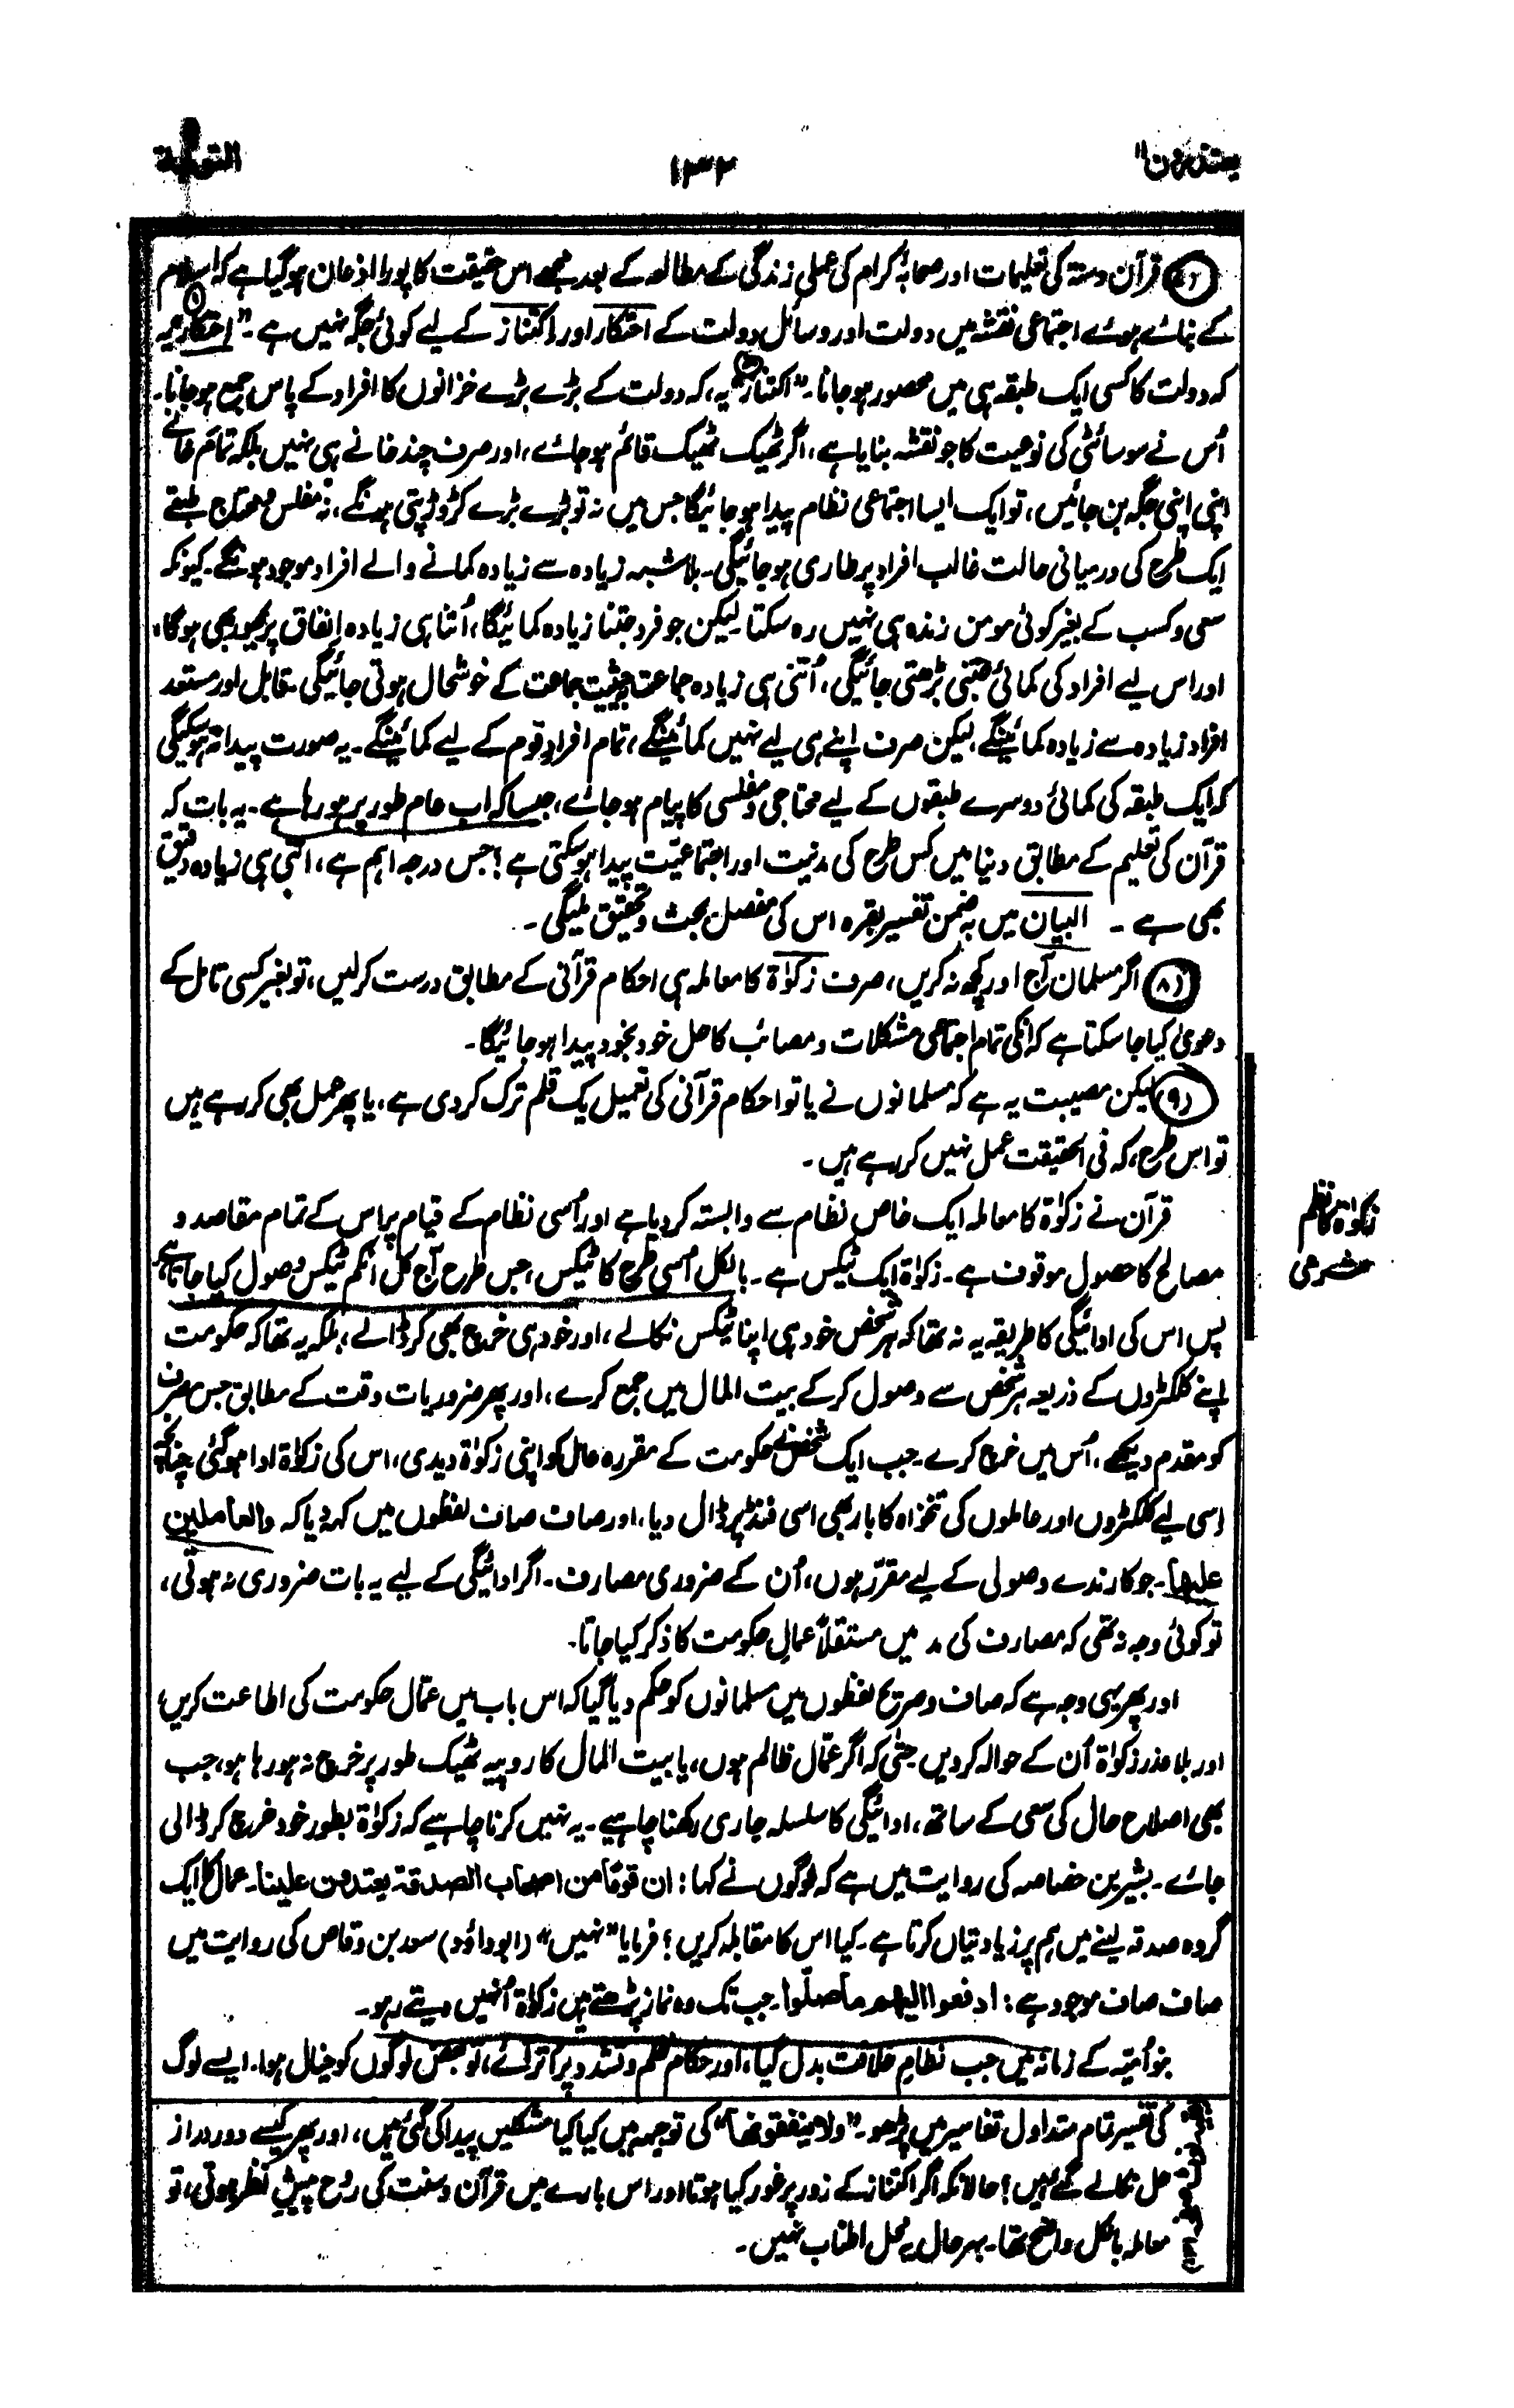 یعتذرون ۱۱
۱۳۲
التوبة
(۷) قرآن و سنۃ کی تعلیمات اور صحابۂ کرام کی عملی زندگی کے مطالعہ کے بعد مجھے اس حقیقت کا پورا اذعان ہوگیا ہے کہ اسلام
کے بنائے ہوئے اجتماعی نقشہ میں دولت اور وسائل دولت کے احتکار اور اکتناز کے لیے کوئی جگہ نہیں ہے۔ "احتکار" یہ
کہ دولت کا کسی ایک طبقہ ہی میں محصور ہوجانا۔ "اکتناز" یہ، کہ دولت کے بڑے بڑے خزانوں کا افراد کے پاس جمع ہوجانا۔
اُس نے سوسائٹی کی نوعیت کا جو نقشہ بنایا ہے، اگر ٹھیک ٹھیک قائم ہوجائے، اور صرف چند خانے ہی نہیں بلکہ تمام خانے
اپنی اپنی جگہ بن جائیں، تو ایک ایسا اجتماعی نظام پیدا ہو جائیگا جس میں نہ تو بڑے بڑے کروڑ پتی ہونگے، نہ مفلس و محتاج طبقے
ایک طرح کی درمیانی حالت غالب افراد پر طاری ہوجائیگی۔ بلاشبہ زیادہ سے زیادہ کمانے والے افراد موجود ہونگے۔ کیونکہ
سعی و کسب کے بغیر کوئی مومن زندہ ہی نہیں رہ سکتا لیکن جو فرد جتنا زیادہ کمائیگا، اُتنا ہی زیادہ انفاق پر مجبور بھی ہوگا،
اور اس لیے افراد کی کمائی جتنی بڑھتی جائیگی، اُتنی ہی زیادہ جماعت بحیثیت جماعت کے خوشحال ہوتی جائیگی۔ قابل اور مستعد
افراد زیادہ سے زیادہ کمائینگے، لیکن صرف اپنے ہی لیے نہیں کمائینگے، تمام افراد قوم کے لیے کمائینگے۔ یہ صورت پیدا نہ ہوسکیگی
کہ ایک طبقہ کی کمائی دوسرے طبقوں کے لیے محتاجی و مفلسی کا پیام ہوجائے، جیسا کہ اب عام طور پر ہو رہا ہے۔ یہ بات کہ
قرآن کی تعلیم کے مطابق دنیا میں کس طرح کی مدنیت اور اجتماعیّت پیدا ہوسکتی ہے؟ جس درجہ اہم ہے، اتنی ہی زیادہ دقیق
بھی ہے۔ البیان میں بہ ضمن تفسیر بقرہ اس کی مفصل بحث و تحقیق ملیگی۔
(۸) اگر مسلمان آج اور کچھ نہ کریں، صرف زکوٰۃ کا معاملہ ہی احکام قرآنی کے مطابق درست کرلیں، تو بغیر کسی تامل کے
دعویٰ کیا جا سکتا ہے کہ انکی تمام اجتماعی مشکلات و مصائب کا حل خود بخود پیدا ہو جائیگا۔
(۹) لیکن مصیبت یہ ہے کہ مسلمانوں نے یا تو احکام قرآنی کی تعمیل یک قلم ترک کردی ہے، یا پھر عمل بھی کر رہے ہیں
تو اس طرح، کہ فی الحقیقت عمل نہیں کر رہے ہیں۔
زکوٰۃ کا نظم
شرعی
قرآن نے زکوٰۃ کا معاملہ ایک خاص نظام سے وابستہ کردیا ہے اور اُسی نظام کے قیام پر اس کے تمام مقاصد و
مصالح کا حصول موقوف ہے۔ زکوٰۃ ایک ٹیکس ہے۔ بالکل اُسی طرح کا ٹیکس، جس طرح آج کل انکم ٹیکس وصول کیا جاتا ہے،
پس اس کی ادائیگی کا طریقہ یہ نہ تھا کہ ہر شخص خود ہی اپنا ٹیکس نکالے، اور خود ہی خرچ بھی کر ڈالے، بلکہ یہ تھا کہ حکومت
اپنے کلکٹروں کے ذریعہ ہر شخص سے وصول کرکے بیت المال میں جمع کرے، اور پھر ضروریات وقت کے مطابق جس مصرف
کو مقدم دیکھے، اُس میں خرچ کرے۔ جب ایک شخص نے حکومت کے مقررہ عامل کو اپنی زکوٰۃ دیدی، اس کی زکوٰۃ ادا ہوگئی چنانچہ
اسی لیے کلکٹروں اور عاملوں کی تنخواہ کا بار بھی اسی فنڈ پر ڈال دیا، اور صاف صاف لفظوں میں کہہ دیا کہ والعاملین
علیھا۔ جو کارندے وصولی کے لیے مقرّر ہوں، اُن کے ضروری مصارف۔ اگر ادائیگی کے لیے یہ بات ضروری نہ ہوتی،
تو کوئی وجہ نہ تھی کہ مصارف کی مد میں مستقلاً عمالِ حکومت کا ذکر کیا جاتا۔
اور پھر یہی وجہ ہے کہ صاف و صریح لفظوں میں مسلمانوں کو حکم دیا گیا کہ اس باب میں عمّال حکومت کی اطاعت کریں
اور بلا عذر زکوٰۃ اُن کے حوالہ کردیں حتیٰ کہ اگر عمّال ظالم ہوں، یا بیت المال کا روپیہ ٹھیک طور پر خرچ نہ ہو رہا ہو، جب
بھی اصلاح حال کی سعی کے ساتھ، ادائیگی کا سلسلہ جاری رکھنا چاہیے۔ یہ نہیں کرنا چاہیے کہ زکوٰۃ بطور خود خرچ کر ڈالی
جائے۔ بشیر بن خصاصہ کی روایت میں ہے کہ لوگوں نے کہا: ان قوماً من اصحاب الصدقۃ یعتدون علینا۔ عمال کا ایک
گروہ صدقہ لینے میں ہم پر زیادتیاں کرتا ہے۔ کیا اس کا مقابلہ کریں؟ فرمایا "نہیں" (ابوداؤد) سعد بن وقاص کی روایت میں
صاف صاف موجود ہے: ادفعوا الیھم ما صلّوا۔ جب تک وہ نماز پڑھتے ہیں زکوٰۃ اُنہیں دیتے رہو۔
بنو اُمیّہ کے زمانہ میں جب نظام خلافت بدل گیا، اور حکام ظلم و تشدد پر اُتر آئے، تو بعض لوگوں کو خیال ہوا۔ ایسے لوگ
کی تفسیر تمام متداول تفاسیر میں پڑھو۔ "ولا ینفقونھا" کی توجیہہ میں کیا کیا مشکلیں پیدا کی گئی ہیں، اور پھر کیسے دور دراز
حل نکالے گئے ہیں؟ حالانکہ اگر اکتناز کے زور پر غور کیا ہوتا اور اس بارے میں قرآن و سنت کی روح پیشِ نظر ہوتی، تو
معاملہ بالکل واضح تھا۔ بہرحال یہ محل اطناب نہیں۔